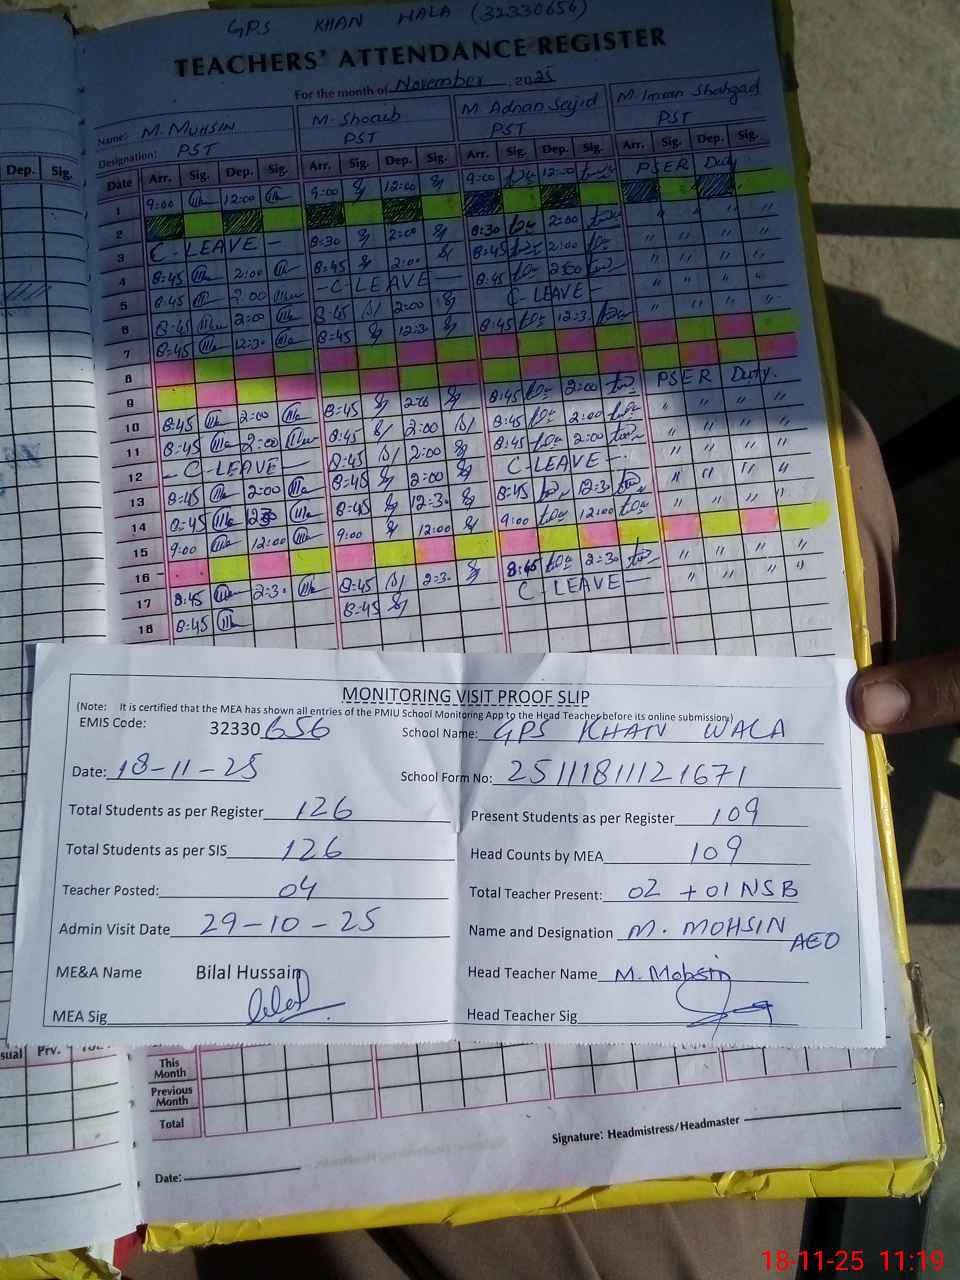 GPS KHAN WALA (32330656)
TEACHERS' ATTENDANCE REGISTER
For the month of November, 2025
Name: M. MUHSIN M. Shoaib M. Adnan Sajid M. Imran Shahzad
Designation: PST PST PST PST
Dep. Sig. Date Arr. Sig. Dep. Sig. Arr. Sig. Dep. Sig. Arr. Sig. Dep. Sig. Arr. Sig. Dep. Sig.
1 9:00 12:00 9:00 12:00 9:00 12:00 PSER Duty
2
3 C-LEAVE - 8:30 2:00 8:30 2:00 " " " "
4 8:45 2:00 8:45 2:00 8:45 2:00 " " " "
5 8:45 2:00 - C-LEAVE - 8:45 2:00 " " " "
6 8:45 2:00 8:45 2:00 C-LEAVE - " " " "
7 8:45 12:3. 8:45 12:3. 8:45 12:3. " " " "
8
9
10 8:45 2:00 8:45 2:00 8:45 2:00 PSER Duty.
11 8:45 2:00 8:45 2:00 8:45 2:00 " " " "
12 - C-LEAVE - 8:45 2:00 8:45 2:00 " " " "
13 8:45 2:00 8:45 2:00 C-LEAVE - " " " "
14 8:45 8:45 12:3. 8:45 12:3. " " " "
15 9:00 12:00 9:00 12:00 9:00 12:00 " " " "
16
17 8:45 2:3. 8:45 2:3. 8:45 2:30 " " " "
18 8:45 8:45 C-LEAVE - " " " "
MONITORING VISIT PROOF SLIP
(Note: It is certified that the MEA has shown all entries of the PMIU School Monitoring App to the Head Teacher before its online submission)
EMIS Code: 32330 656 School Name: GPS KHAN WALA
Date: 18-11-25 School Form No: 25111811121671
Total Students as per Register 126 Present Students as per Register 109
Total Students as per SIS 126 Head Counts by MEA 109
Teacher Posted: 04 Total Teacher Present: 02 + 01 NSB
Admin Visit Date 29-10-25 Name and Designation M. MOHSIN AEO
ME&A Name Bilal Hussain Head Teacher Name M. Mohsin
MEA Sig Head Teacher Sig
sual Prv.
This Month
Previous Month
Total
Signature: Headmistress/Headmaster
Date:
18-11-25 11:19